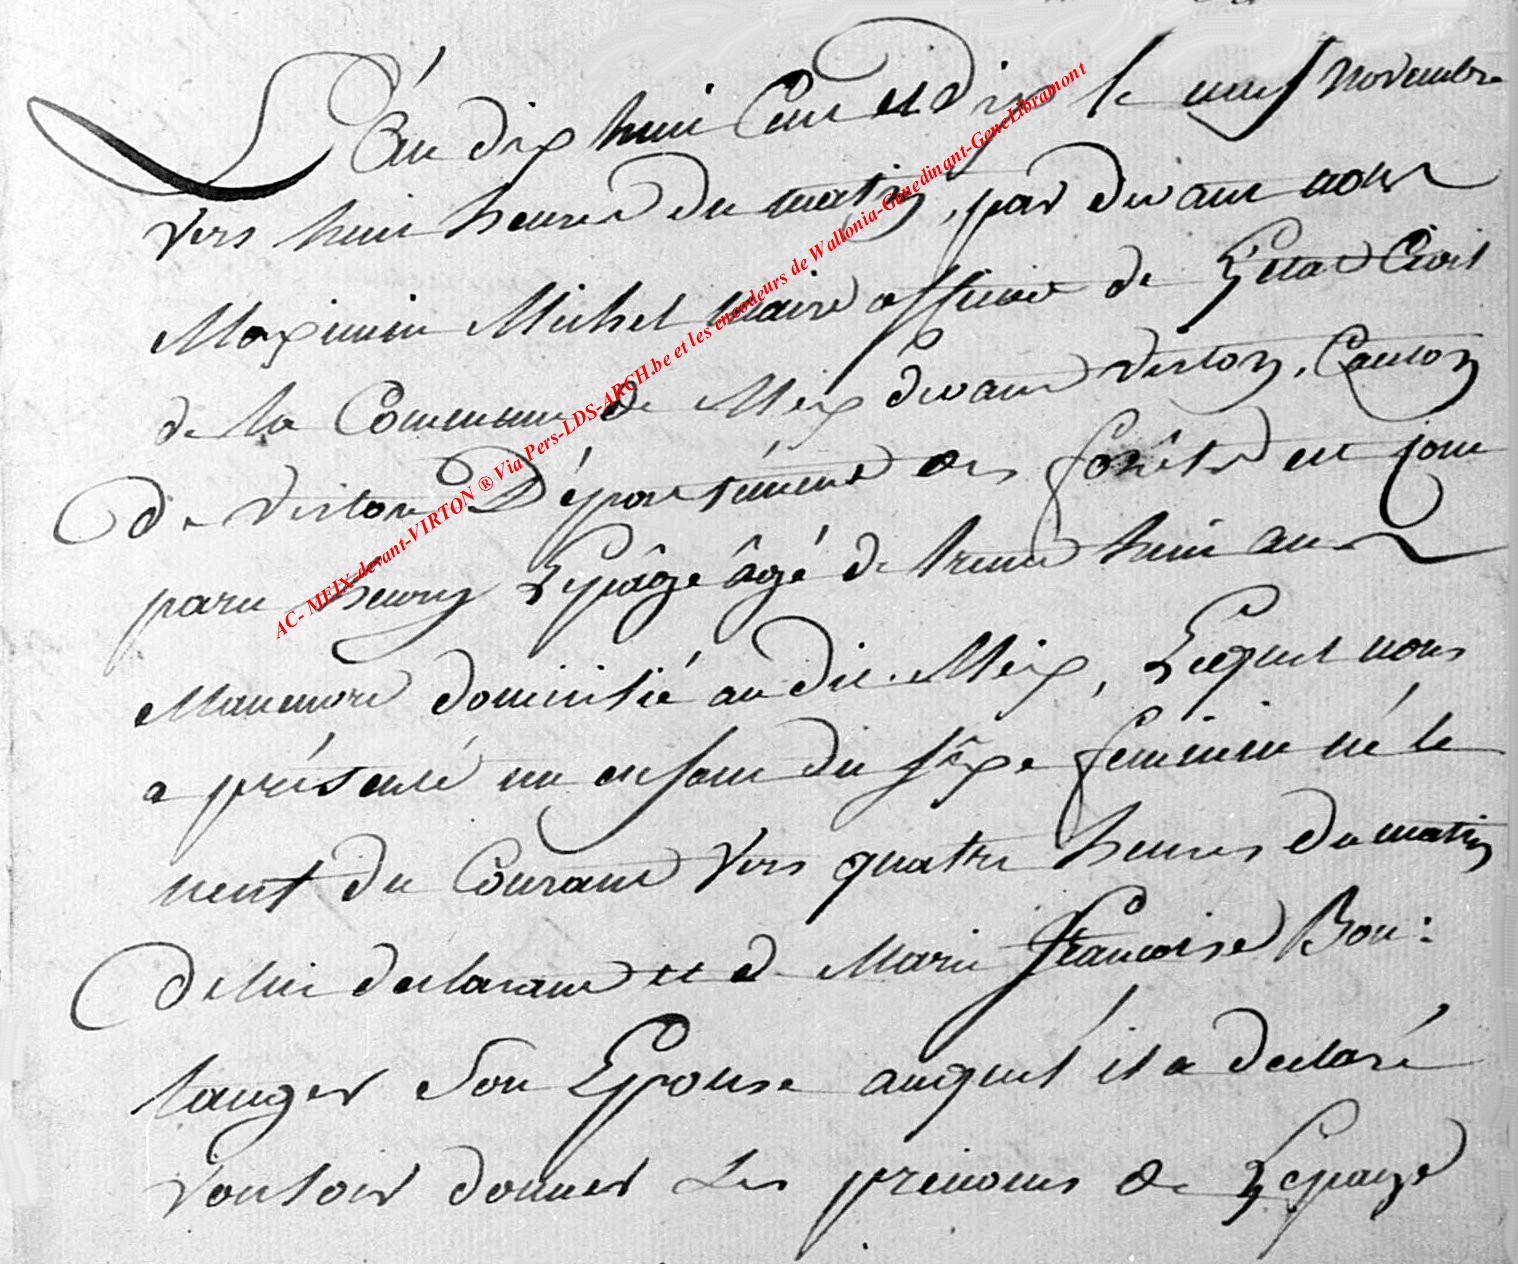 L'an dix huit Cent et dix le neuf novembre
vers huit heures du matin, par devant nous
Maximin Michel Maire officier de L'état Civil
de la Commune de Meix devant virton, Canton
de virton Département des forêts est com
paru henry Lepâge âgé de trente huit ans
Manœuvre domicilié au dit Meix, Lequel nous
a présenté un enfant du sexe feminin né le
neuf du Courant vers quatre heures du matin
de lui declarant et de Marie françoise Bou:
langer son Epouse auquel il a declaré
vouloir donner les prénoms de Lepage
AC- MEIX-devant-VIRTON ® Via Pers-LDS-ARCH.be et les encodeurs de Wallonia-Genedinant-GeneLibramont